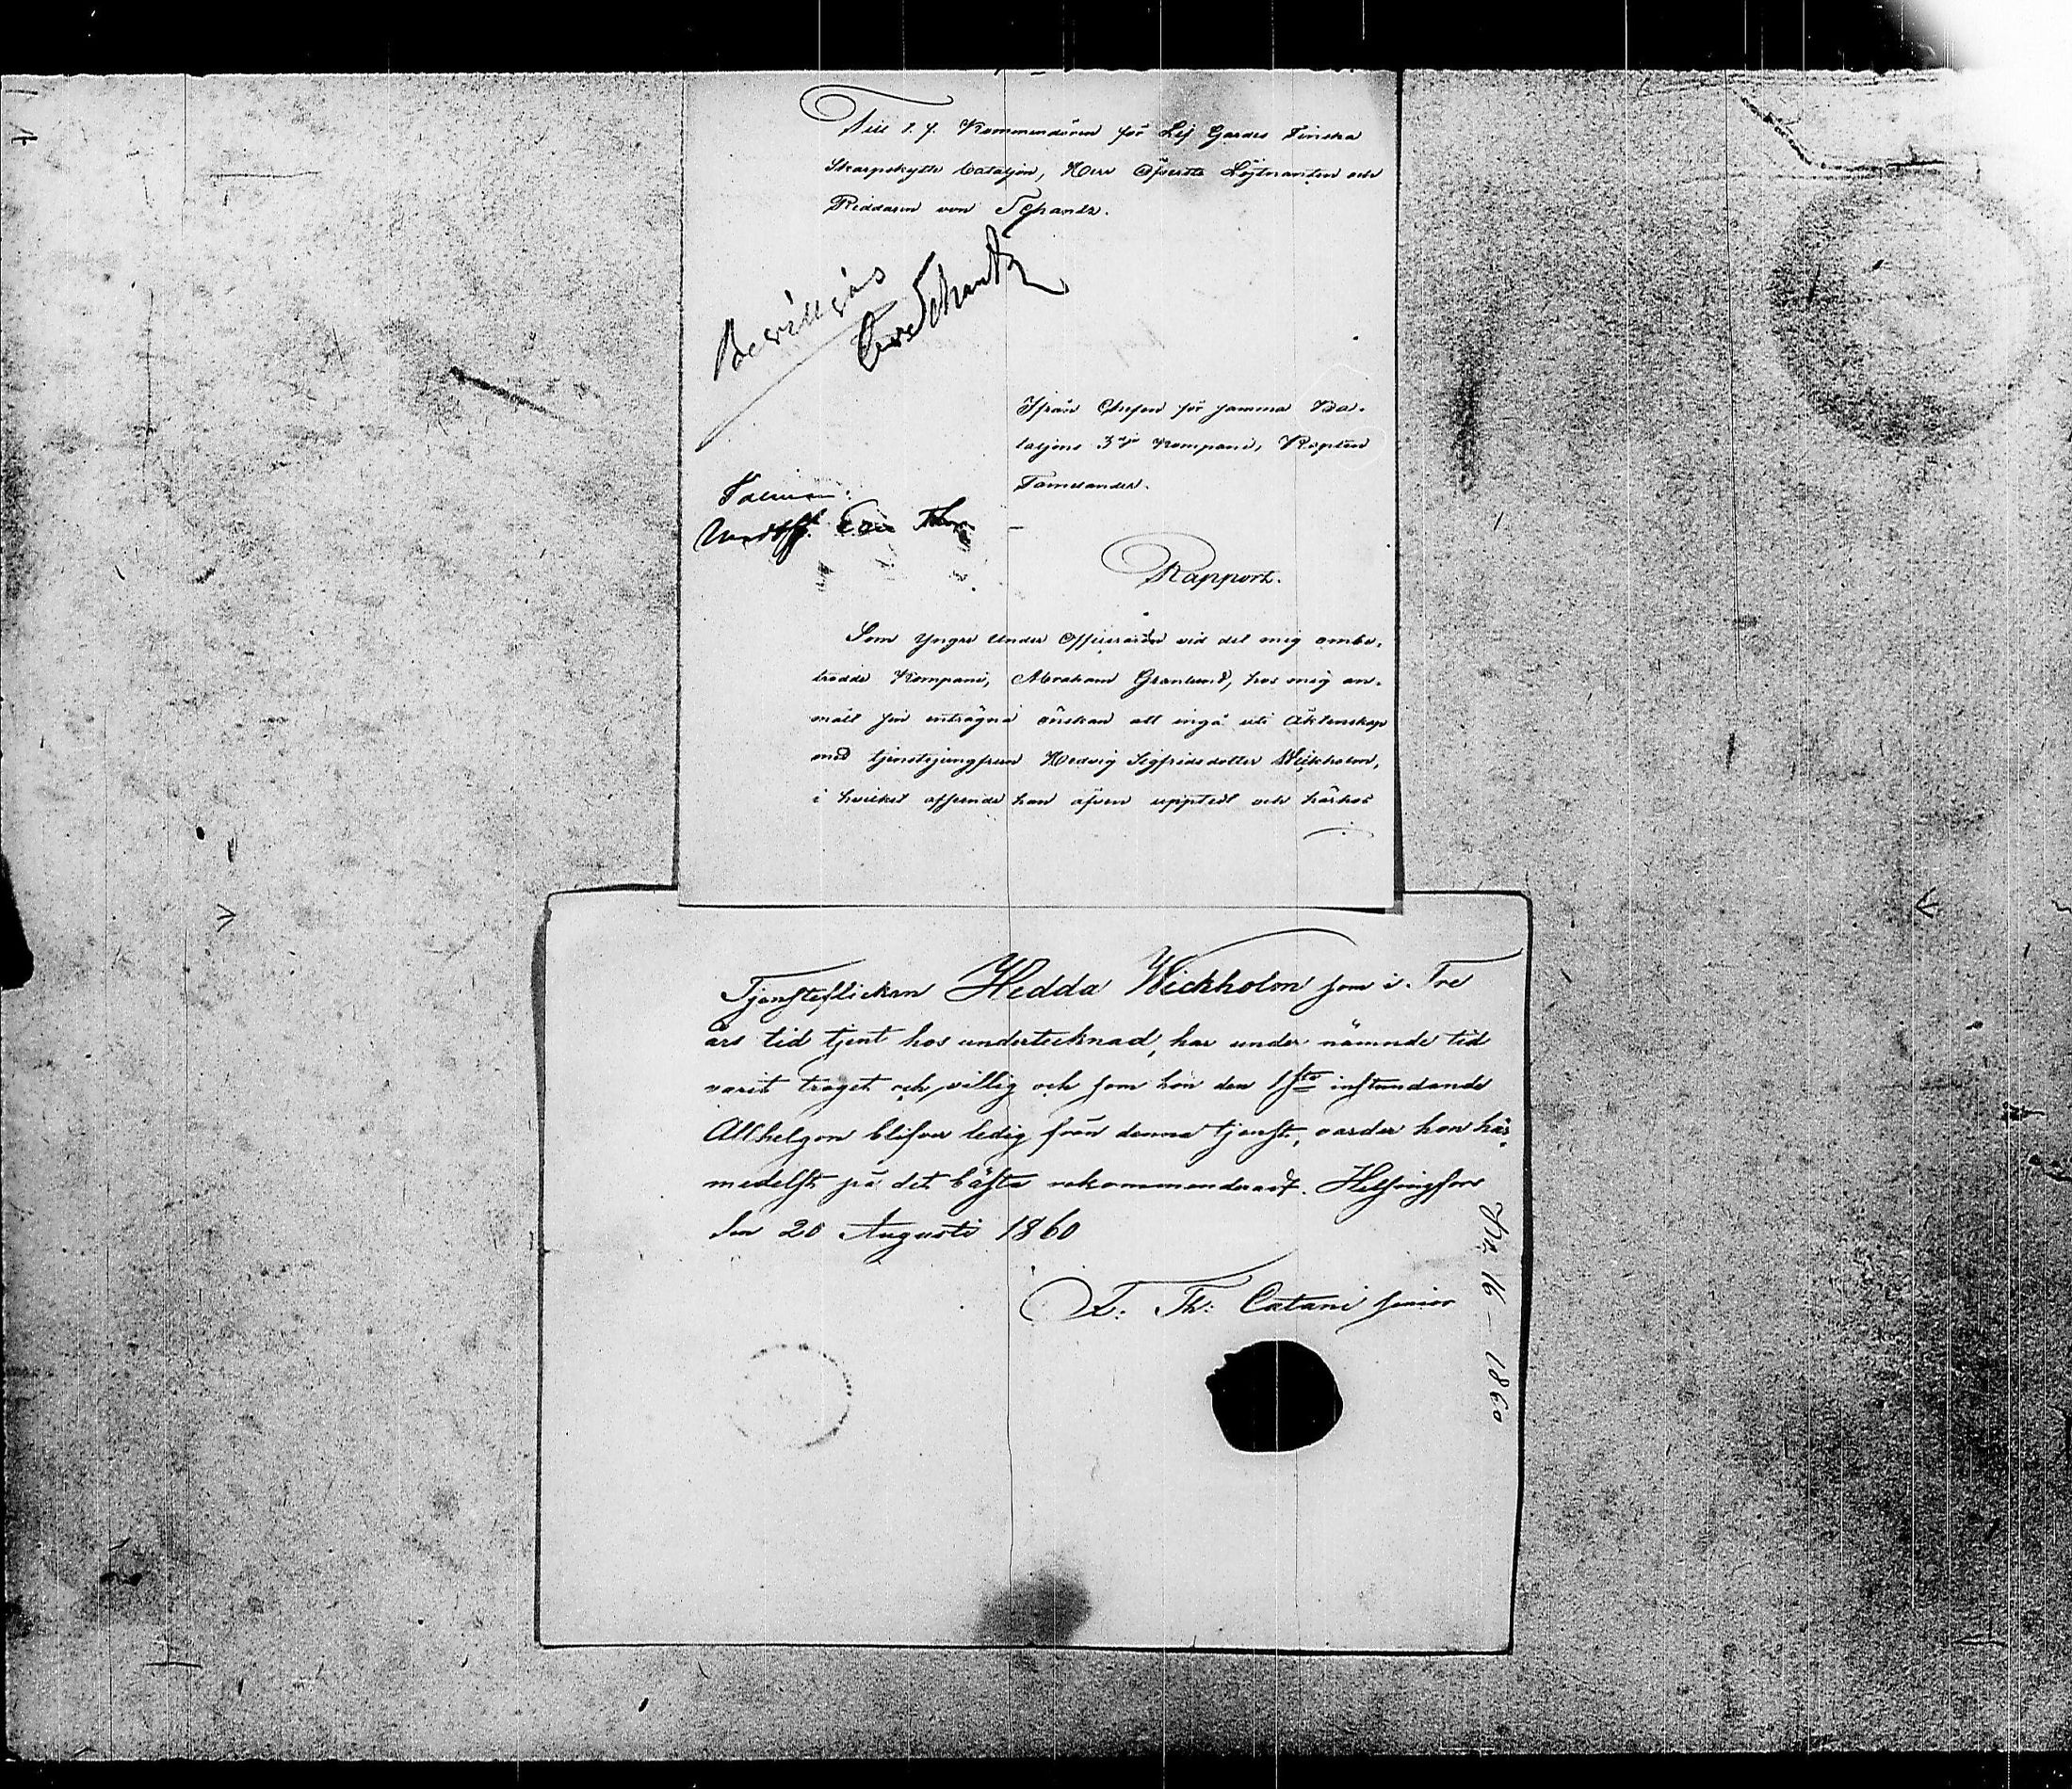 Till t. f. Kommendören för Lif Gardes Finska
Skarpskytte bataljon, Herr Öfverste Löjtnanten och
Riddaren von Schantz.
Beviljas
von Schantz
Ifrån Chefen för samma Ba-
taljons 3dje Kompani, Kapten
Tamelander.
Rapport.
Som Yngre Under Officeraren vid det mig ombe-
trodde Kompani, Abraham Granlund, hos mig an-
mält sin enträgna önskan att ingå uti Äktenskap
med tjenstejungfrun Hedvig Sigfridsdotter Wickholm,
i hvilket afseende han äfven upptedt och härhos
Tjensteflickan Hedda Wickholm som i Tre
års tid tjent hos undertecknad, har under nämnde tid
varit troget och villig och som hon den 1sta instundande
Allhelgon blifver ledig från denna tjenst, varder hon här-
medelst på det bästa rekommenderad. Helsingfors
den 20 Augusti 1860
F. Th: Catani junior
No 16 - 1860